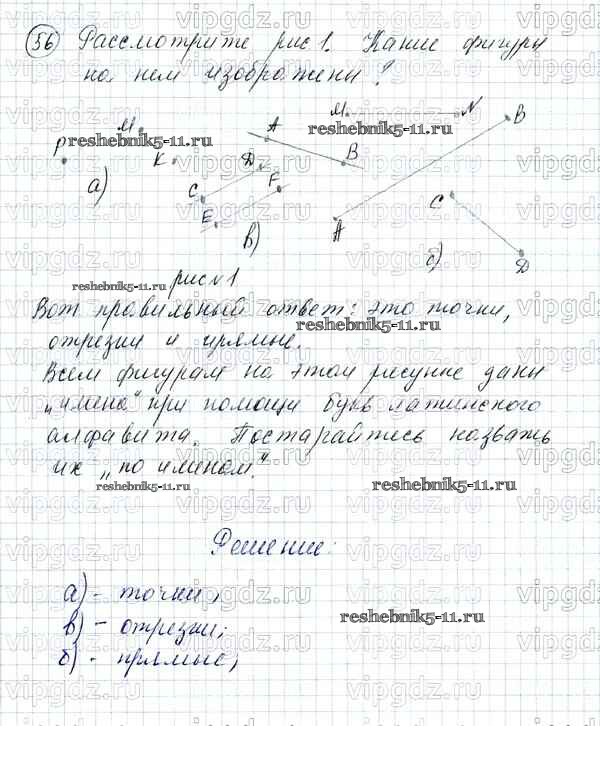 56 Рассмотрите рис 1. Какие фигуры
на нем изображены?
M M N B
reshebnik5-11.ru reshebnik5-11.ru
P K A B
а) C D F C
E в) A с) D
reshebnik5-11.ru рис №1
Вот правильный ответ: это точки,
reshebnik5-11.ru
отрезки и прямые.
Всем фигурам на этом рисунке даны
„имена" при помощи букв латинского
алфавита. Постарайтесь назвать
их „по именам".
reshebnik5-11.ru reshebnik5-11.ru
Решение:
а) - точки;
reshebnik5-11.ru
в) - отрезки;
б) - прямые;
vipgdz.ru